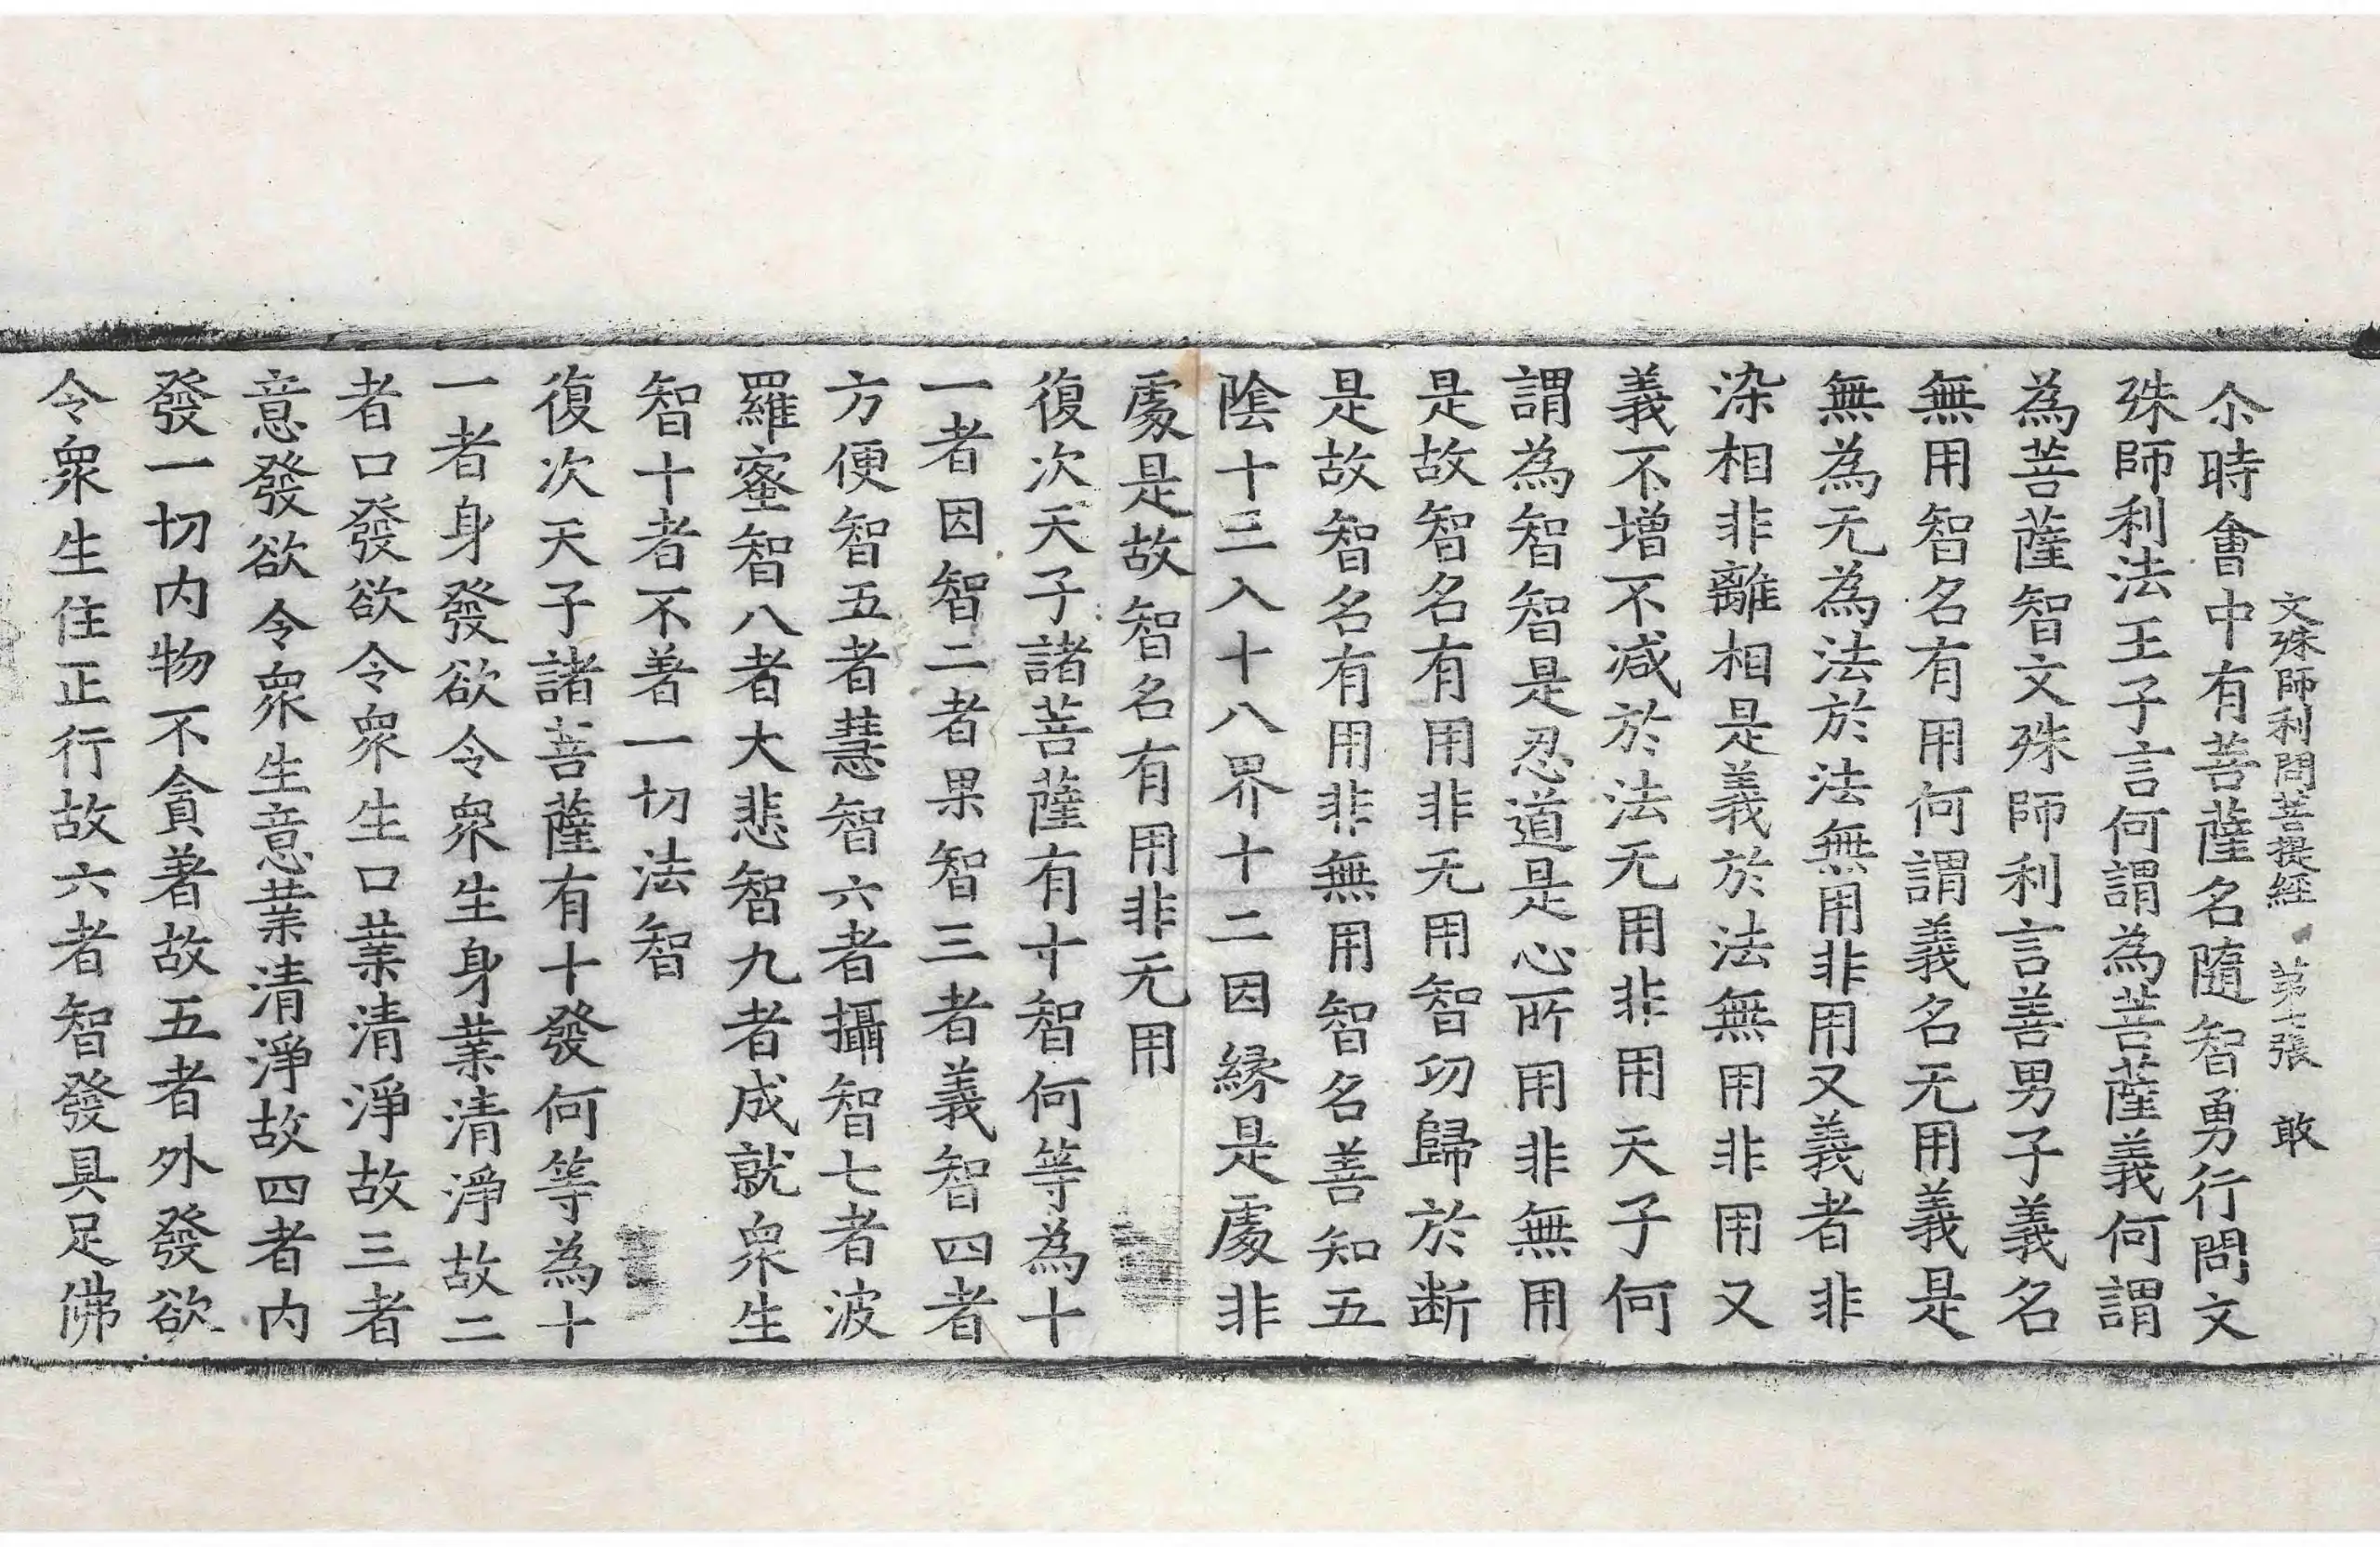 文殊師利問菩提經 第十張 敢
尒時會中有菩薩名隨智勇行問文
殊師利法王子言何謂為菩薩義何謂
為菩薩智文殊師利言善男子義名
無用智名有用何謂義名无用義是
無為无為法於法無用非用又義者非
染相非離相是義於法無用非用又
義不增不减於法无用非用天子何
謂為智智是忍道是心所用非無用
是故智名有用非无用智㓛歸於断
是故智名有用非無用智名善知五
陰十二入十八界十二因緣是處非
處是故智名有用非无用
復次天子諸菩薩有十智何等為十
一者因智二者果智三者義智四者
方便智五者慧智六者攝智七者波
羅蜜智八者大悲智九者成就衆生
智十者不著一切法智
復次天子諸菩薩有十發何等為十
一者身發欲令衆生身業清淨故二
者口發欲令衆生口業清淨故三者
意發欲令衆生意業清淨故四者内
發一切内物不貪著故五者外發欲
令衆生住正行故六者智發具足佛